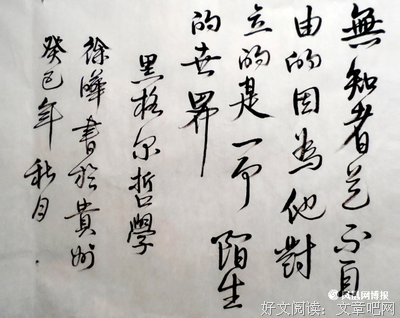 無知者是不自
由的因為他對
立的是一个陌生
的世界
黑格尔哲學
徐曄書於貴州
癸巳年秋月
凤凰网博报
好文阅读：文章吧网